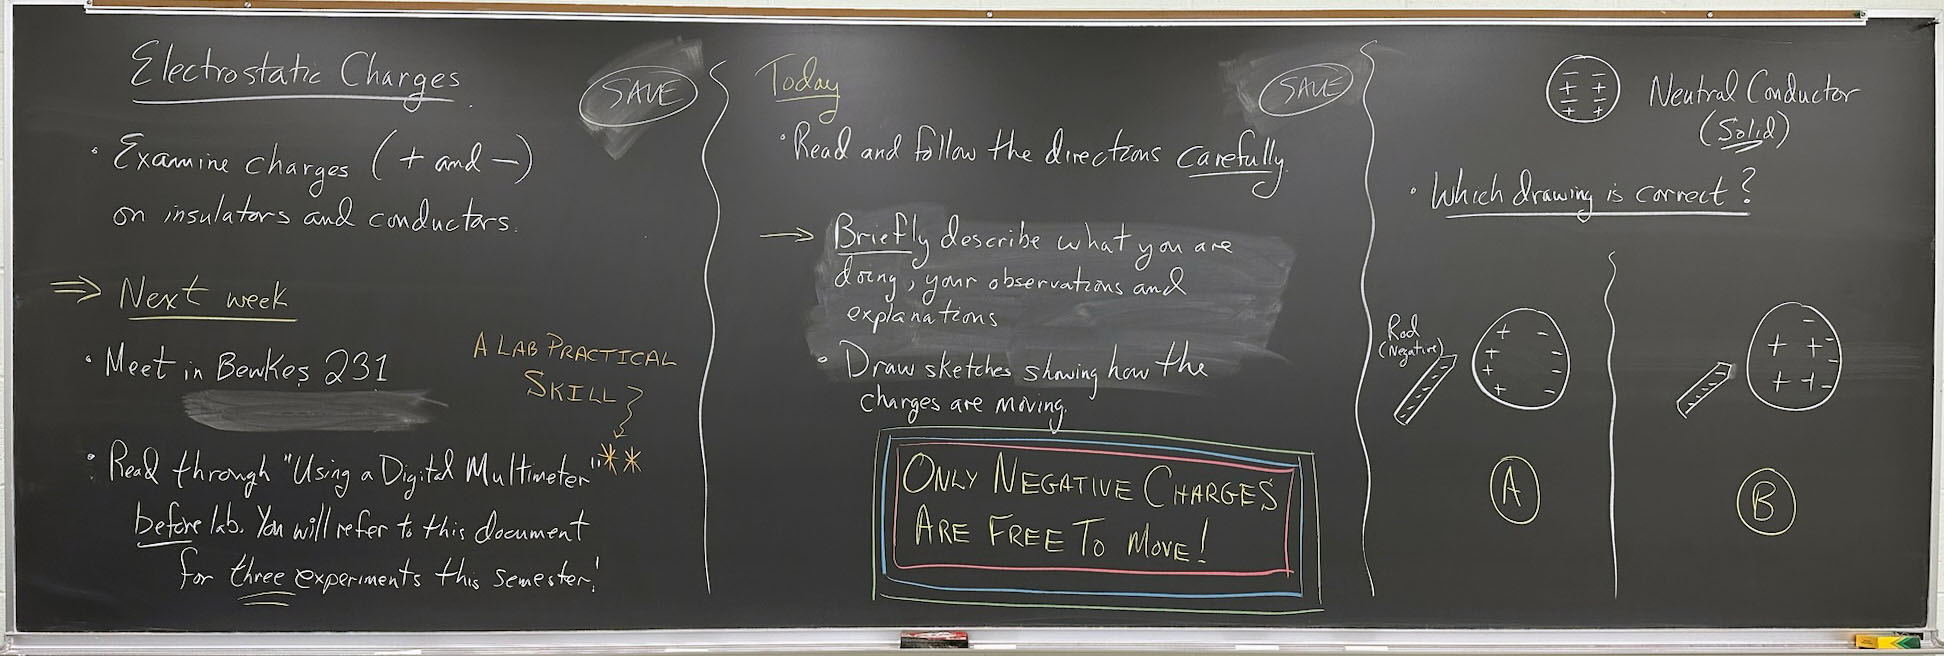 Electrostatic Charges
SAVE
• Examine charges (+ and −)
on insulators and conductors.
⇒ Next week
• Meet in Bewkes 231
A LAB PRACTICAL
SKILL
• Read through "Using a Digital Multimeter"**
before lab. You will refer to this document
for three experiments this semester!
Today
SAVE
• Read and follow the directions carefully.
→ Briefly describe what you are
doing, your observations and
explanations
• Draw sketches showing how the
charges are moving.
ONLY NEGATIVE CHARGES
ARE FREE TO MOVE!
− −
+ +
− −
+ +
Neutral Conductor
(Solid)
• Which drawing is correct?
Rod
(Negative)
+ −
+ −
+ −
+ −
A
−
+ + −
+ + −
B